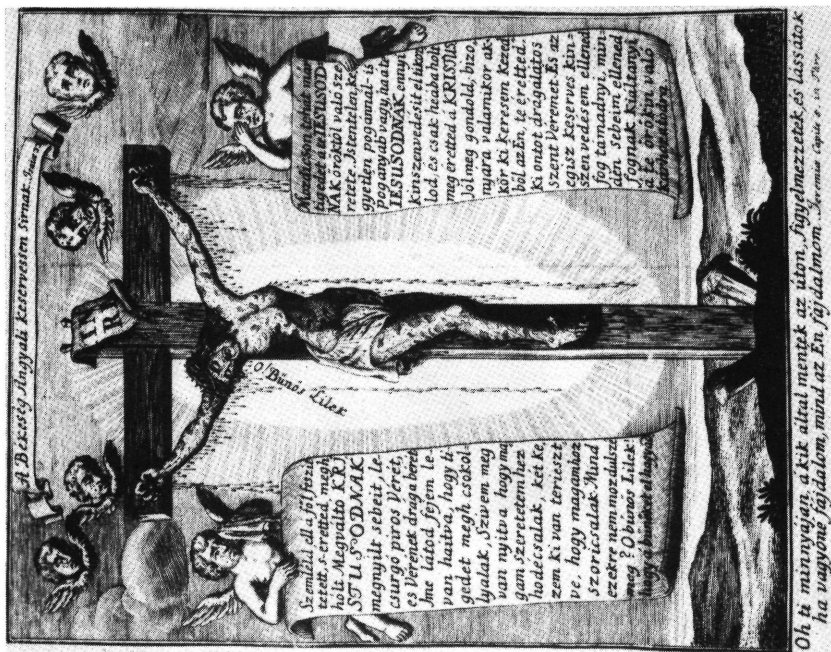 A Bekeseg Angyali keservessen sirnak. Isaiæ
O! Bünös Lilek
Szemleld ell a fal feszi
tetett, s-eretted meg
holt Megvalto KRI
STUSODNAK
megnyilt sebeit, le
csurgo piros Verét,
es Verenek draga beret
Ime latod fejem le
van hajtva, hogy ti
gedet megh csokol
lyalak, Szivem meg
van nyitva, hogy ma
gam szeretetemhez
hodecsalak. ket Ke
zem ki van terieszt
ve, hogy magamhoz
szoricsalak. Mind
ezekre nem mozdulsz
meg? O bünös Lilek.
hogy el hitetet
Mozdicson indicson meg
tigedet a te IESUSOD
NAK öröktöl való sze
retete. Istentelen, ke
gyetlen pogannal-is
poganyab vagy, ha a te
IESUSODNAK ennyi
kinszenvedesit el titko
lod. és csak hiaba holt
meg eretted a KRISTUS
Jol meg gondold, bizo
nyara valamikor ak
kor ki kerem kezed
böl az En, te eretted
ki ontot dragalatos
szent Veremet. Es az
egisz keserves kin
szenvedesem ellened
fog tamadny, min
dain sebeim ellened
fognak kialtany
a te örökin való
karhozatodra
Oh ti minnyajan, a kik által mentek az úton, figyelmezzetek, és lassatok
ha vagyone fajdalom, mind az En fajdalmom. Jeremiæ Capite 1. 12 Vers.